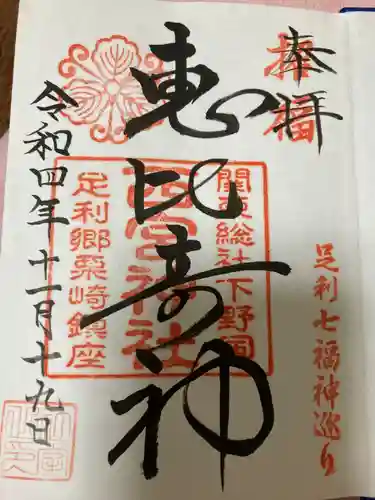 奉拝
捧福
恵比寿神
足利七福神巡り
関東総社下野国
西宮神社
足利郷栗崎鎮座
令和四年十一月十九日